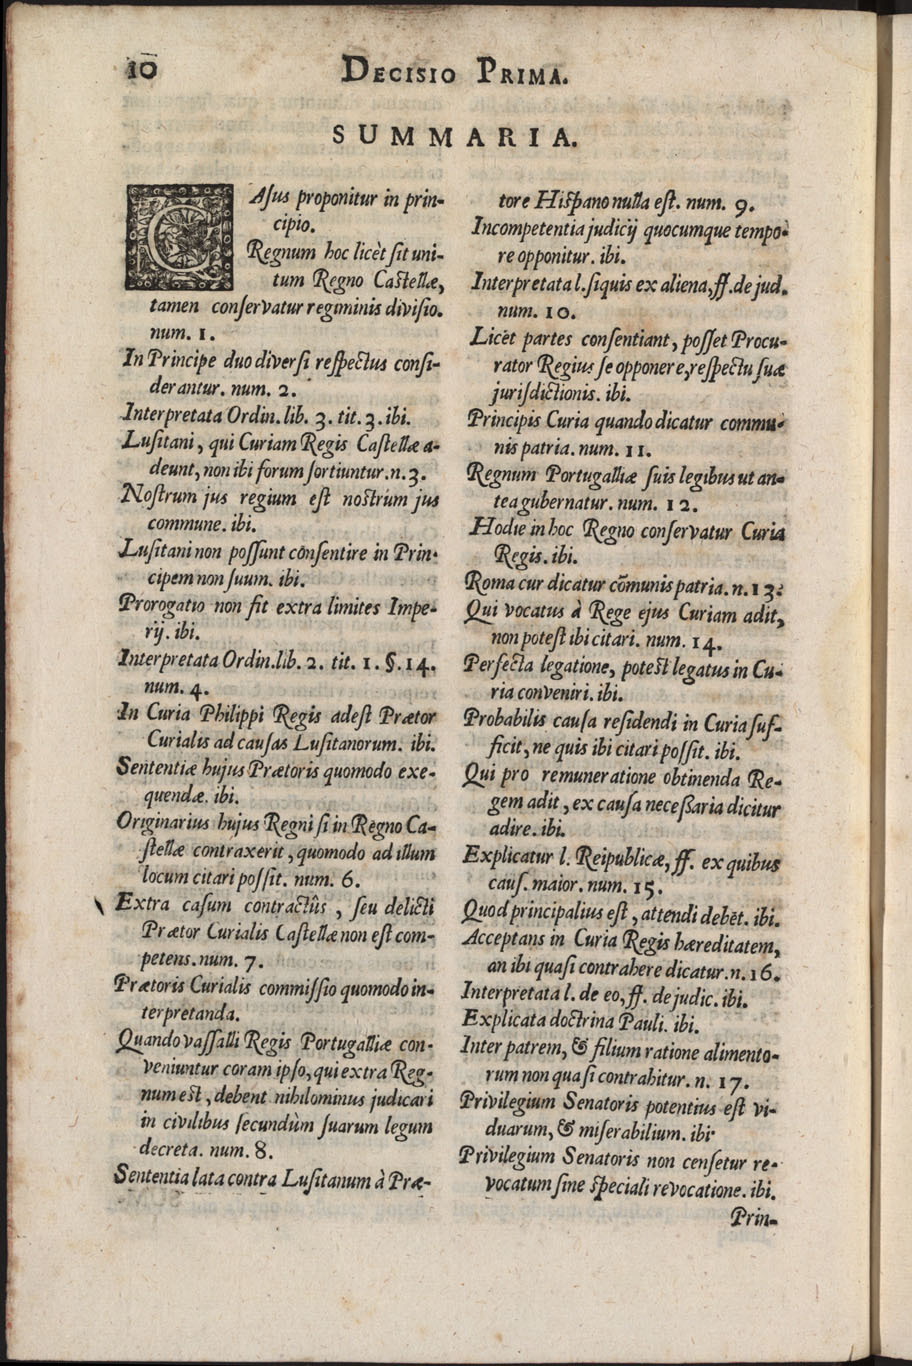 10
DECISIO PRIMA.
SUMMARIA.
CAſus proponitur in prin-
cipio.
Regnum hoc licèt ſit uni-
tum Regno Caſtellæ,
tamen conſervatur regiminis diviſio.
num. 1.
In Principe duo diverſi reſpectus conſi-
derantur. num. 2.
Interpretata Ordin. lib. 3. tit. 3. ibi.
Luſitani, qui Curiam Regis Caſtellæ a-
deunt, non ibi forum ſortiuntur. n. 3.
Noſtrum jus regium eſt noſtrum jus
commune. ibi.
Luſitani non poſſunt conſentire in Prin-
cipem non ſuum. ibi.
Prorogatio non fit extra limites Impe-
rij. ibi.
Interpretata Ordin. lib. 2. tit. 1. §. 14.
num. 4.
In Curia Philippi Regis adeſt Prætor
Curialis ad cauſas Luſitanorum. ibi.
Sententiæ hujus Prætoris quomodo exe-
quendæ. ibi.
Originarius hujus Regni ſi in Regno Ca-
ſtellæ contraxerit, quomodo ad illum
locum citari poſſit. num. 6.
Extra caſum contractûs, ſeu delicti
Prætor Curialis Caſtellæ non eſt com-
petens. num. 7.
Prætoris Curialis commiſſio quomodo in-
terpretanda.
Quando vaſſalli Regis Portugalliæ con-
veniuntur coram ipſo, qui extra Reg-
num eſt, debent nihilominus judicari
in civilibus ſecundùm ſuarum legum
decreta. num. 8.
Sententia lata contra Luſitanum à Præ-
tore Hiſpano nulla eſt. num. 9.
Incompetentia judicij quocumque tempo-
re opponitur. ibi.
Interpretata l. ſiquis ex aliena, ff. de jud.
num. 10.
Licèt partes conſentiant, poſſet Procu-
rator Regius ſe opponere, reſpectu ſuæ
juriſdictionis. ibi.
Principis Curia quando dicatur commu-
nis patria. num. 11.
Regnum Portugalliæ ſuis legibus ut an-
tea gubernatur. num. 12.
Hodie in hoc Regno conſervatur Curia
Regis. ibi.
Roma cur dicatur cõmunis patria. n. 13.
Qui vocatus à Rege ejus Curiam adit,
non poteſt ibi citari. num. 14.
Perfecta legatione, poteſt legatus in Cu-
ria conveniri. ibi.
Probabilis cauſa reſidendi in Curia ſuf-
ficit, ne quis ibi citari poſſit. ibi.
Qui pro remuneratione obtinenda Re-
gem adit, ex cauſa neceßaria dicitur
adire. ibi.
Explicatur l. Reipublicæ, ff. ex quibus
cauſ. maior. num. 15.
Quod principalius eſt, attendi debēt. ibi.
Acceptans in Curia Regis hæreditatem,
an ibi quaſi contrahere dicatur. n. 16.
Interpretata l. de eo, ff. de judic. ibi.
Explicata doctrina Pauli. ibi.
Inter patrem, & filium ratione alimento-
rum non quaſi contrahitur. n. 17.
Privilegium Senatoris potentius eſt vi-
duarum, & miſerabilium. ibi.
Privilegium Senatoris non cenſetur re-
vocatum ſine ſpeciali revocatione. ibi.
Prin-